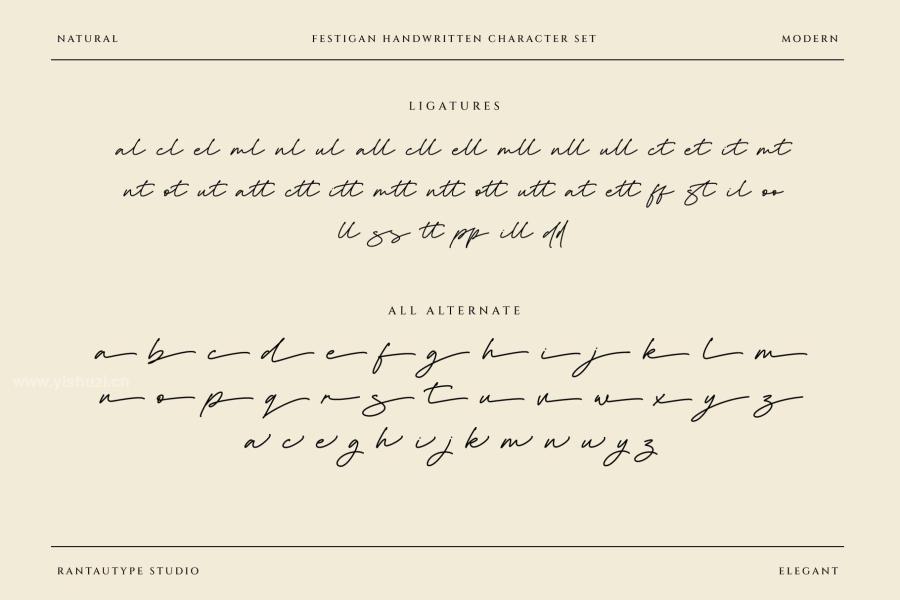 NATURAL
FESTIGAN HANDWRITTEN CHARACTER SET
MODERN
LIGATURES
al cl el ml nl ul all cll ell mll nll ull ct et it mt
nt ot ut att ctt itt mtt ntt ott utt at ett ff st il oo
ll ss tt pp ill dd
ALL ALTERNATE
a b c d e f g h i j k l m
www.yishuzi.cn
n o p q r s t u v w x y z
a c e g h i j k m n u y z
RANTAUTYPE STUDIO
ELEGANT